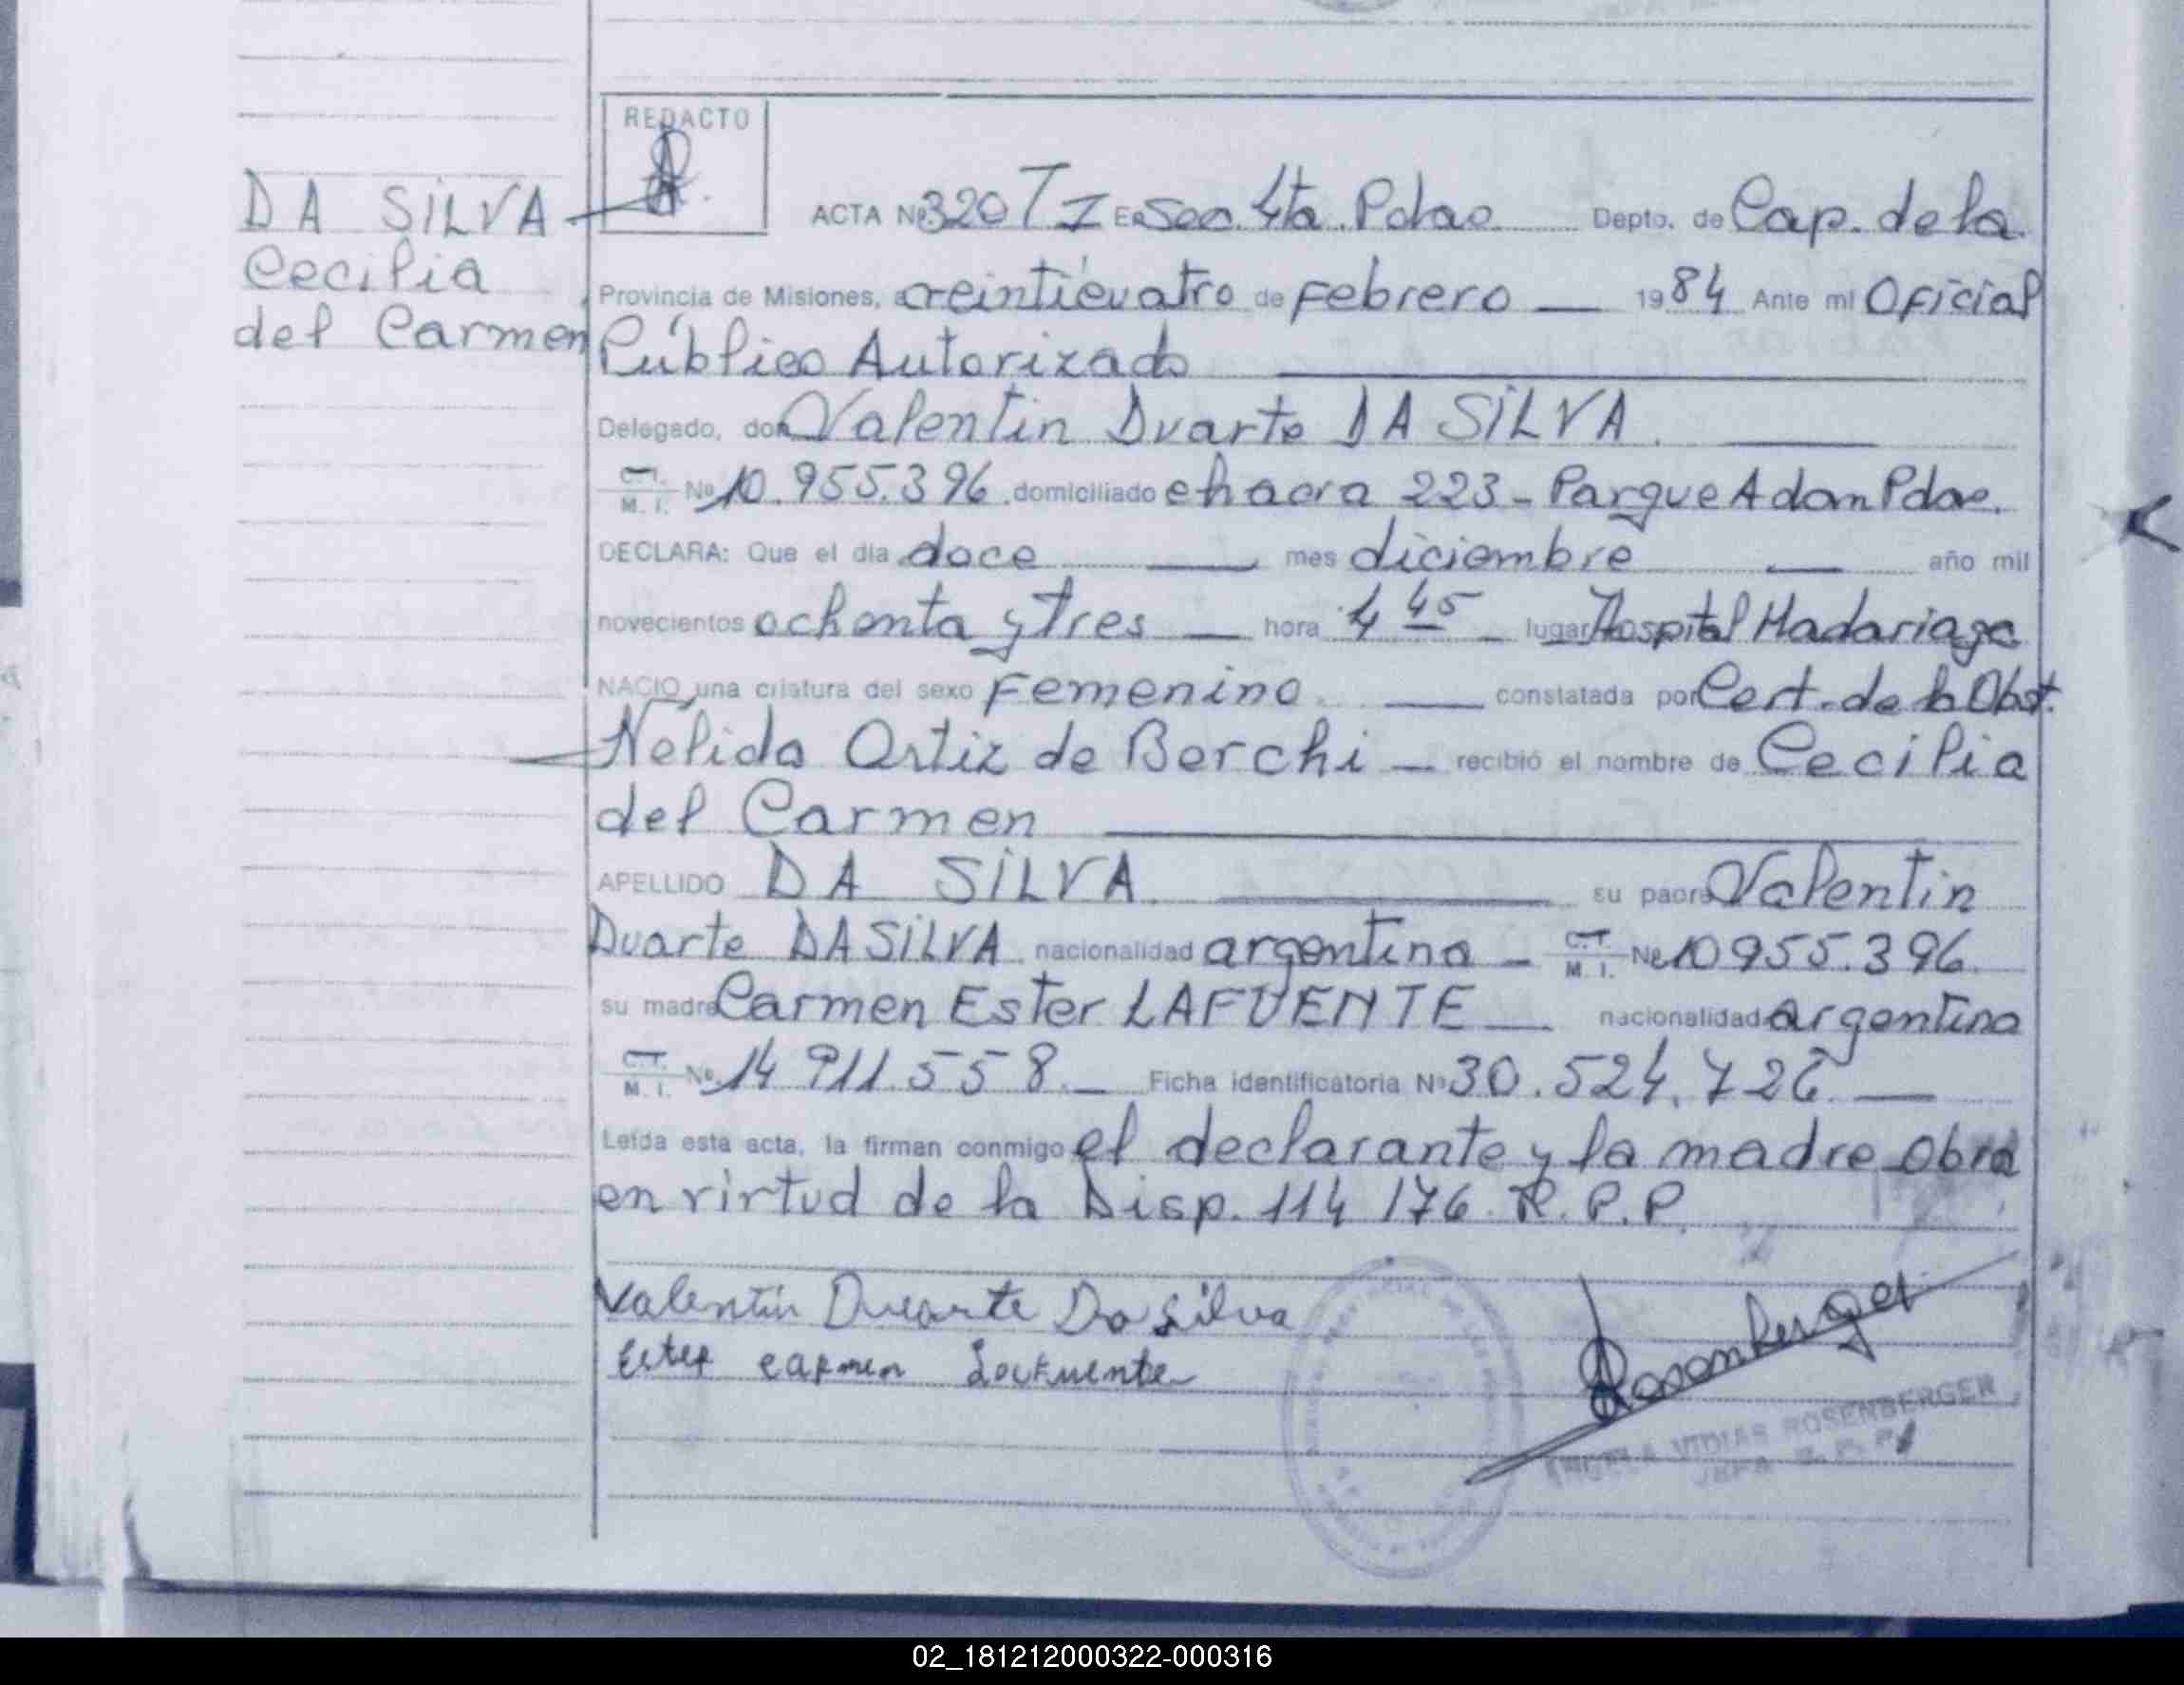 REDACTO
DA SILVA
Cecilia
del Carmen
ACTA Nº 320 TI En Secc. 4ta. Pdas. Depto. de Cap. de la
Provincia de Misiones, a veintícuatro de Febrero — 1984 Ante mí Oficial
Público Autorizado
Delegado, don Valentin Duarte DA SILVA.
C.I. M. I. Nº 10.955.396. domiciliado chacra 223 - Parque Adam Pdas.
DECLARA: Que el día doce — mes diciembre — año mil
novecientos ochenta y tres — hora 4 45 — lugar Hospital Madariaga
NACIO una criatura del sexo Femenino. — constatada por Cert. de la Obst.
Nélida Ortiz de Berchi — recibió el nombre de Cecilia
del Carmen
APELLIDO DA SILVA. su padre Valentin
Duarte DA SILVA nacionalidad argentina - C.I. M. I. Nº 10955.396
su madre Carmen Ester LAFUENTE — nacionalidad argentina
C.I. M. I. Nº 14 911.558. — Ficha identificatoria Nº 30.524.726. —
Leída esta acta, la firman conmigo el declarante y la madre obra
en virtud de la Disp. 114/76 R.P.P.
Valentin Duarte Da Silva
Ester Carmen Lafuente
Rosenberger
ANGELA VIDIAS ROSENBERGER
JEFA R.P.P.
02_181212000322-000316